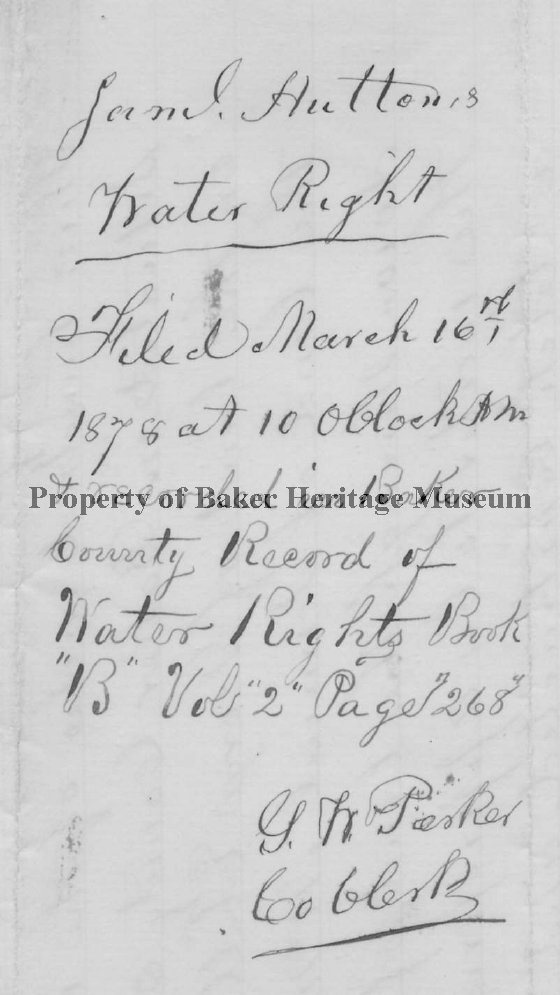 Saml. Huttons
Water Right
Filed March 16th
1878 at 10 Oclock AM
& recorded in Baker
Property of Baker Heritage Museum
County Record of
Water Rights Book
"B" Vol "2" Page "268"
G. W. Parker
Co Clerk